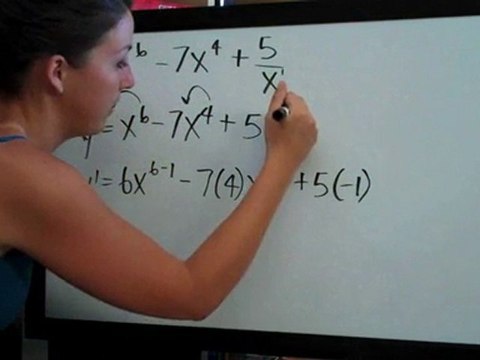 6 - 7x⁴ + 5/x¹
y = x⁶ - 7x⁴ + 5
y' = 6x⁶⁻¹ - 7(4) + 5(-1)